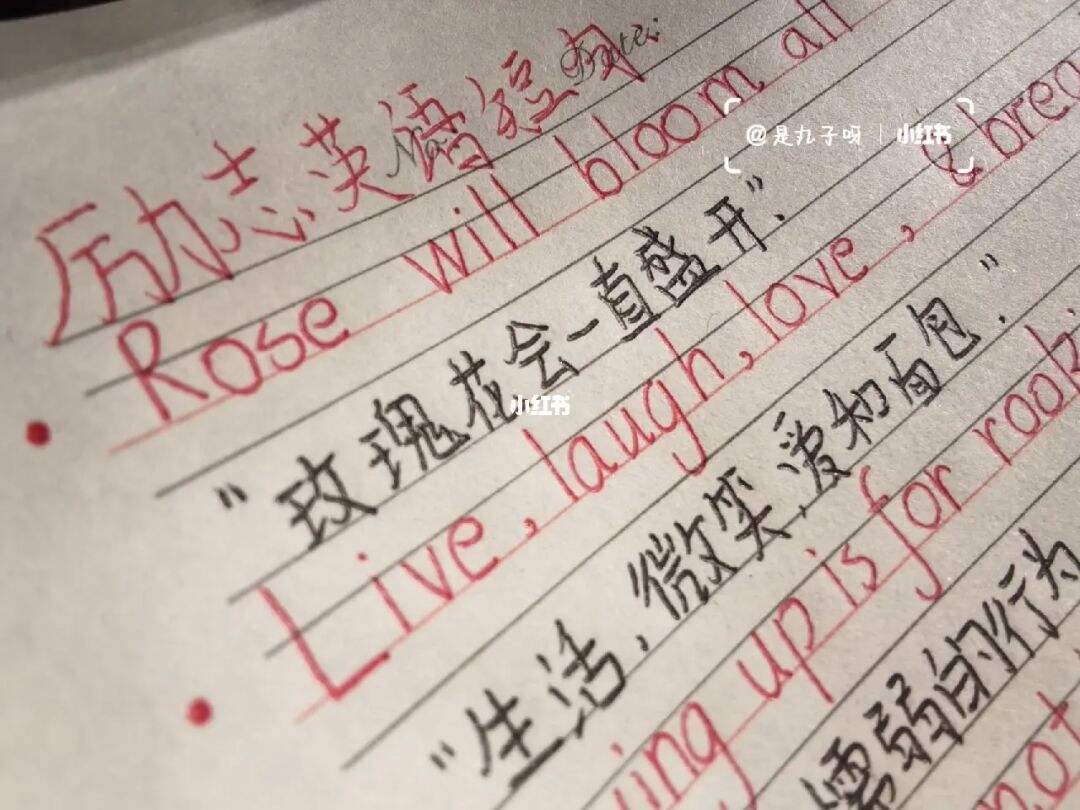 厉志英语短句
Rose will bloom all
"玫瑰花会一直盛开."
Live, laugh, love, & brea
"生活,微笑,爱和面包."
ing up is for rook
懦弱的行为
not
@是丸子呀 | 小红书
小红书